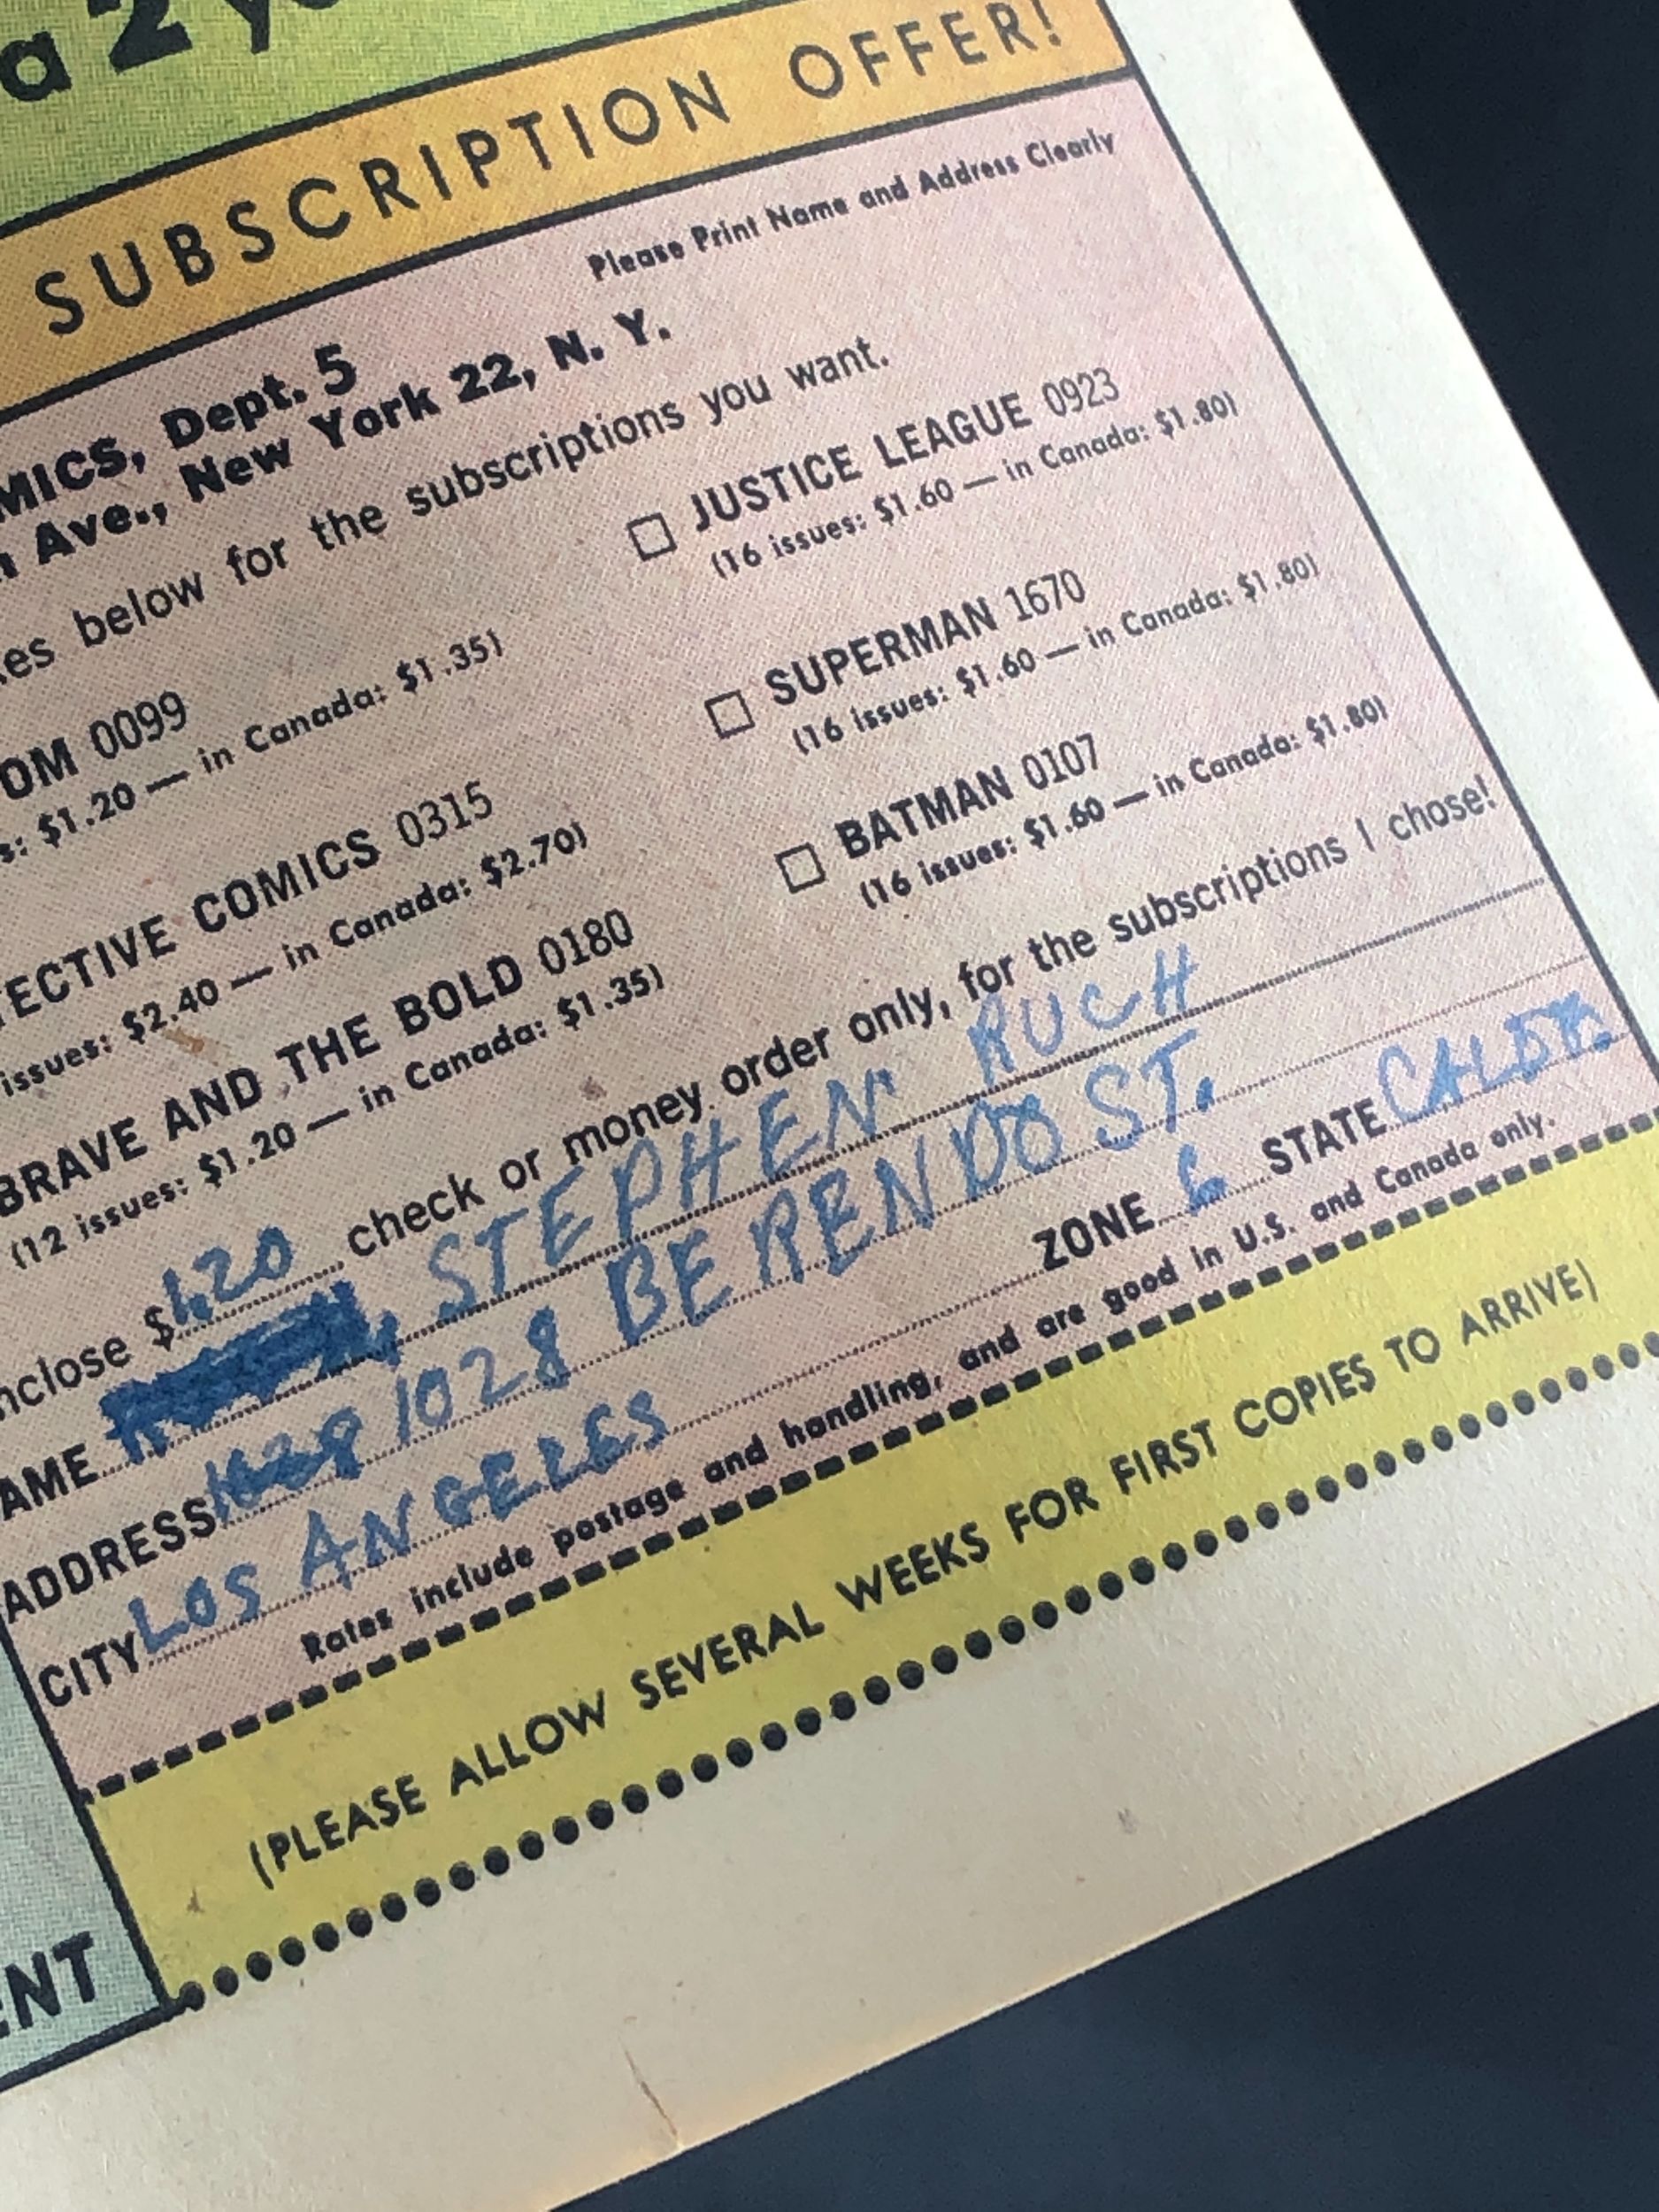 a 2 y
SUBSCRIPTION OFFER!
Please Print Name and Address Clearly
MICS, Dept. 5
n Ave., New York 22, N. Y.
es below for the subscriptions you want.
OM 0099
s: $1.20 — in Canada: $1.35)
TECTIVE COMICS 0315
issues: $2.40 — in Canada: $2.70)
BRAVE AND THE BOLD 0180
(12 issues: $1.20 — in Canada: $1.35)
JUSTICE LEAGUE 0923
(16 issues: $1.60 — in Canada: $1.80)
SUPERMAN 1670
(16 issues: $1.60 — in Canada: $1.80)
BATMAN 0107
(16 issues: $1.60 — in Canada: $1.80)
nclose $1.20 check or money order only, for the subscriptions I chose!
AME STEPHEN RUCH
ADDRESS 1028 BERENDO ST.
CITY LOS ANGELES ZONE 6 STATE
Rates include postage and handling, and are good in U.S. and Canada only.
(PLEASE ALLOW SEVERAL WEEKS FOR FIRST COPIES TO ARRIVE)
ENT